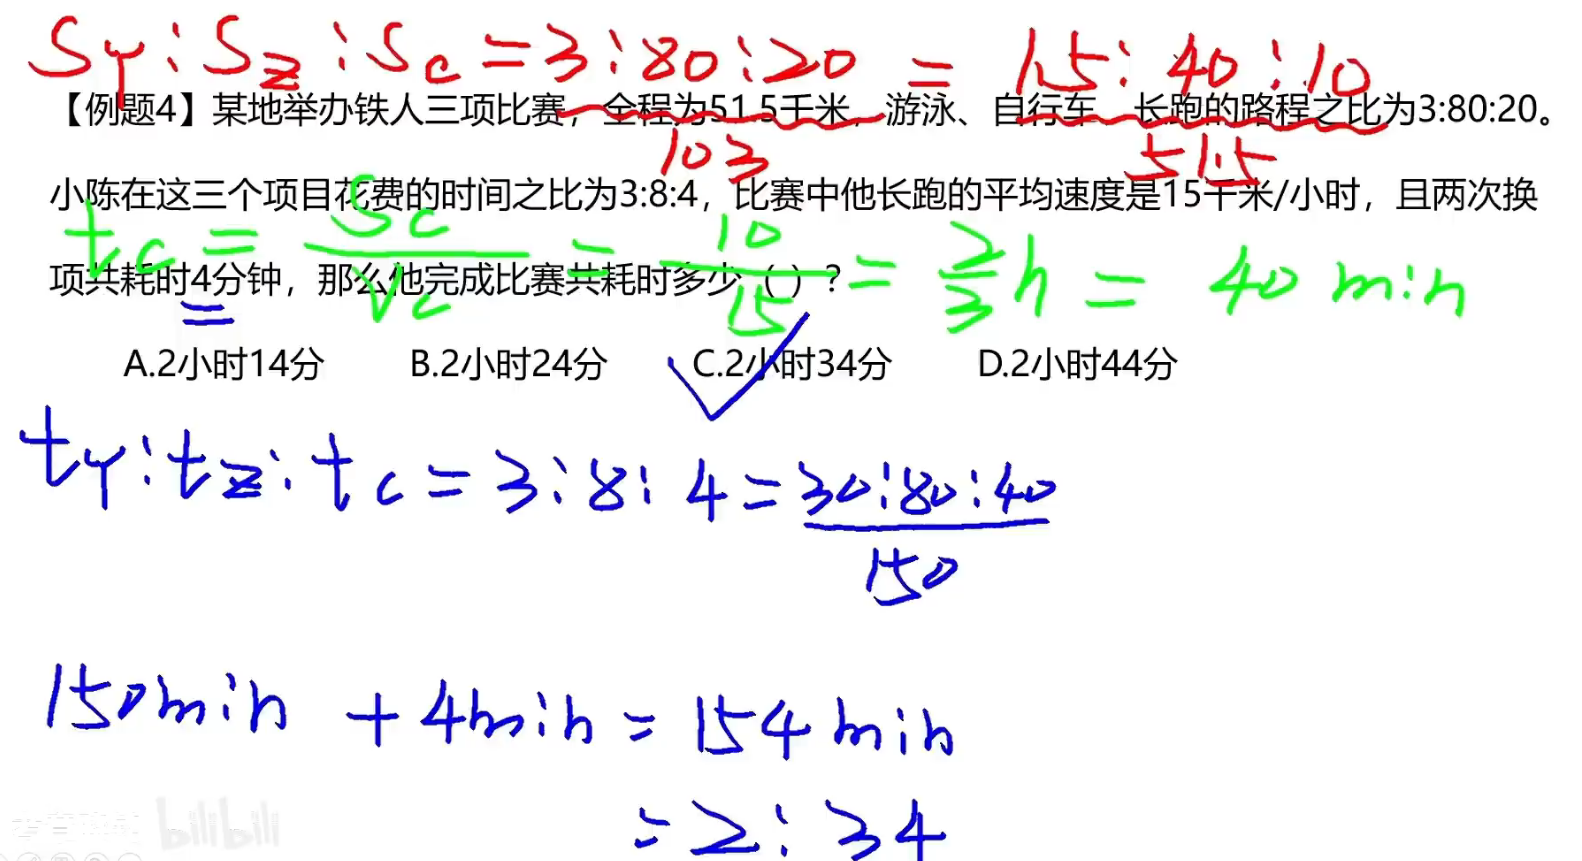 Sy:Sz:Sc=3:80:20=1.5:40:10
【例题4】某地举办铁人三项比赛，全程为51.5千米，游泳、自行车、长跑的路程之比为3:80:20。
103 51.5
小陈在这三个项目花费的时间之比为3:8:4，比赛中他长跑的平均速度是15千米/小时，且两次换
tc=Sc/Vc=10/15=2/3h=40min
项共耗时4分钟，那么他完成比赛共耗时多少（）？
A.2小时14分 B.2小时24分 C.2小时34分 D.2小时44分
ty:tz:tc=3:8:4=30:80:40
150
150min+4min=154min
=2:34
bilibili